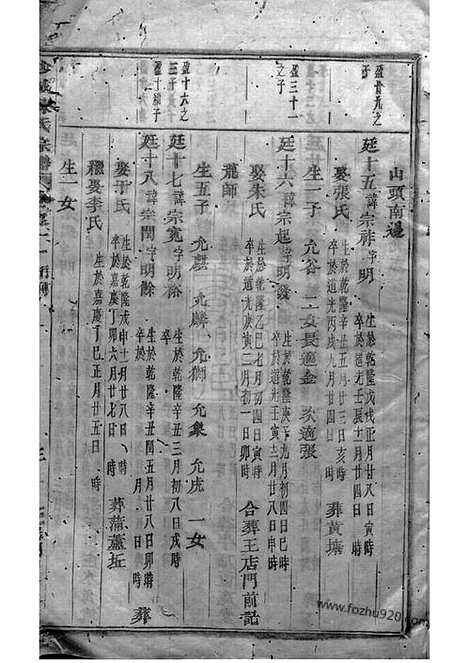 盈廿九之子
盈三十一之子
盈十六之三子
盈十繼子
山頭南邊
廷十五諱宗祚字明 生於乾隆戊戌正月廿八日寅時 卒於道光壬辰十二月廿四日 時
娶張氏 生於乾隆辛丑五月廿三日亥時 卒於道光丙戌九月廿四日 時 葬黃塘
生一子 允谷 二女長適金 次適張
廷十六諱宗起字明發 生於乾隆庚子九月初四日巳時 卒於道光庚寅十二月廿八日申時
娶朱氏 生於乾隆乙巳七月初四日寅時 卒於道光庚寅二月初一日卯時 合葬王店門前記
龍師
生五子 允麒 允麟 允獅 允象 允虎 一女
廷十七諱宗寬字明裕 生於乾隆辛丑三月初八日戌時 卒於
廷十八諱宗閏字明餘 生於乾隆辛丑閏五月廿八日卯時 卒於 月 日 時 葬
娶于氏 生於乾隆戊申十一月廿八日 時 卒於嘉慶丁卯六月廿七日 時 葬蒲蘆坵
繼娶李氏 生於嘉慶丁巳正月廿五日 時
生一女
www.fozhu920.com